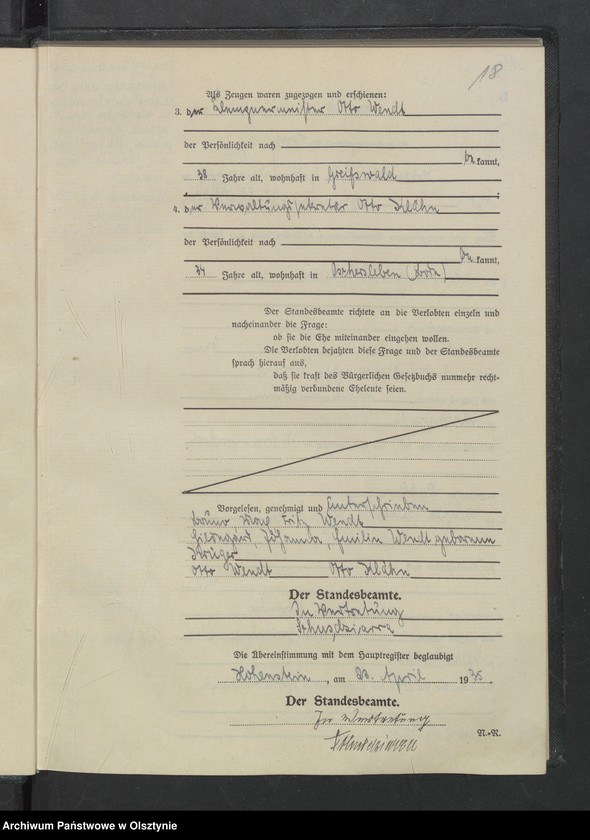 18
Als Zeugen waren zugezogen und erschienen:
3. der Klempnermeister Otto Wendt
der Persönlichkeit nach
be kannt,
38 Jahre alt, wohnhaft in Greifswald
4. der Verwaltungssekretär Otto
der Persönlichkeit nach
be kannt,
34 Jahre alt, wohnhaft in Oschersleben (Bode)
Der Standesbeamte richtete an die Verlobten einzeln und
nacheinander die Frage:
ob sie die Ehe miteinander eingehen wollen.
Die Verlobten bejahten diese Frage und der Standesbeamte
sprach hierauf aus,
daß sie kraft des Bürgerlichen Gesetzbuchs nunmehr recht-
mäßig verbundene Eheleute seien.
Vorgelesen, genehmigt und unterschrieben
Bruno Fritz Wendt
Hildegard, Johanna, Emilie Wendt geborene
Krüger
Otto Wendt Otto
Der Standesbeamte.
In Vertretung
Die Übereinstimmung mit dem Hauptregister beglaubigt
Hohenstein, am April 19
Der Standesbeamte.
In Vertretung
N.-R.
Archiwum Państwowe w Olsztynie